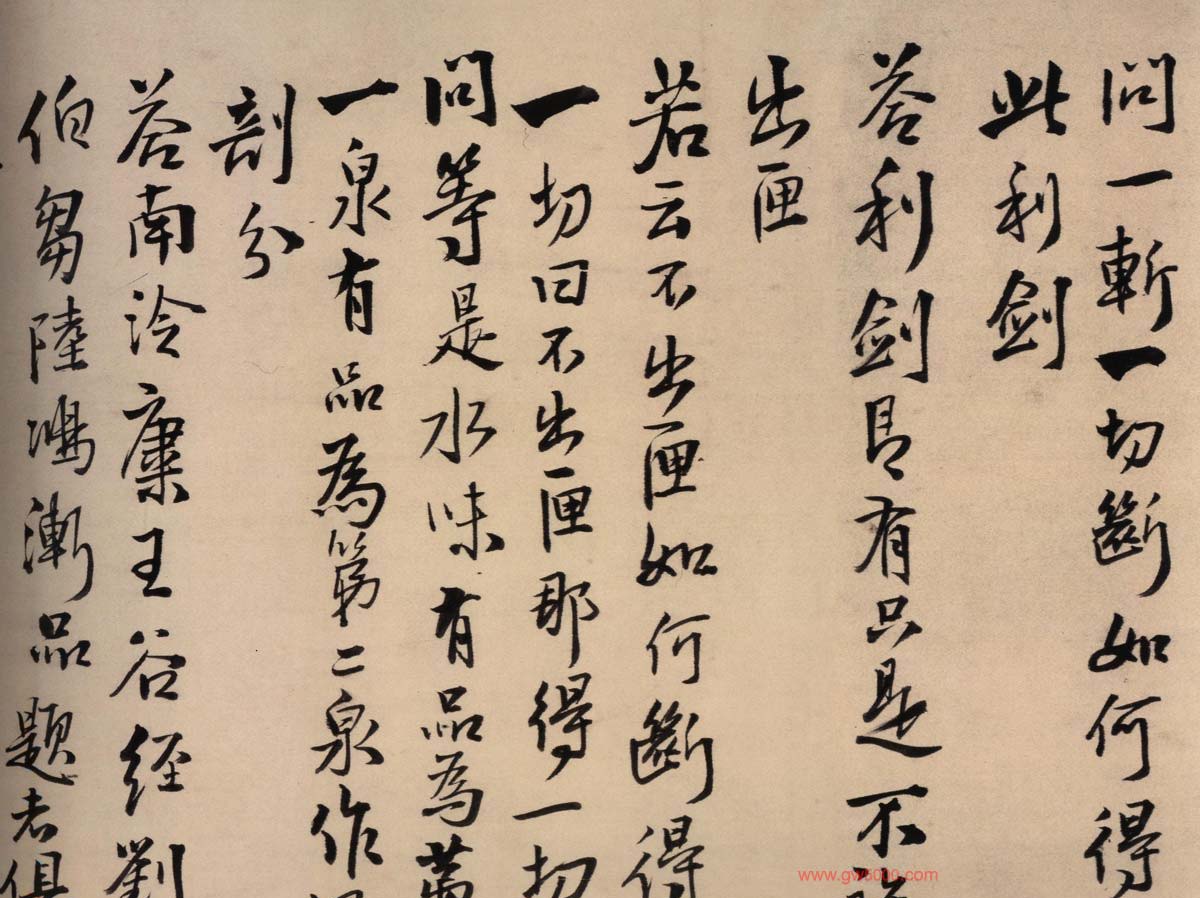 問一斬一切斷如何得
此利劍
答利劍自有只是不
出匣
若云不出匣如何斷得
一切曰不出匣那得一切
問等是水味有品為第
一泉有品為第二泉作
剖分
答南泠康王谷經劉
伯芻陸鴻漸品題者俱
www.gw5000.com